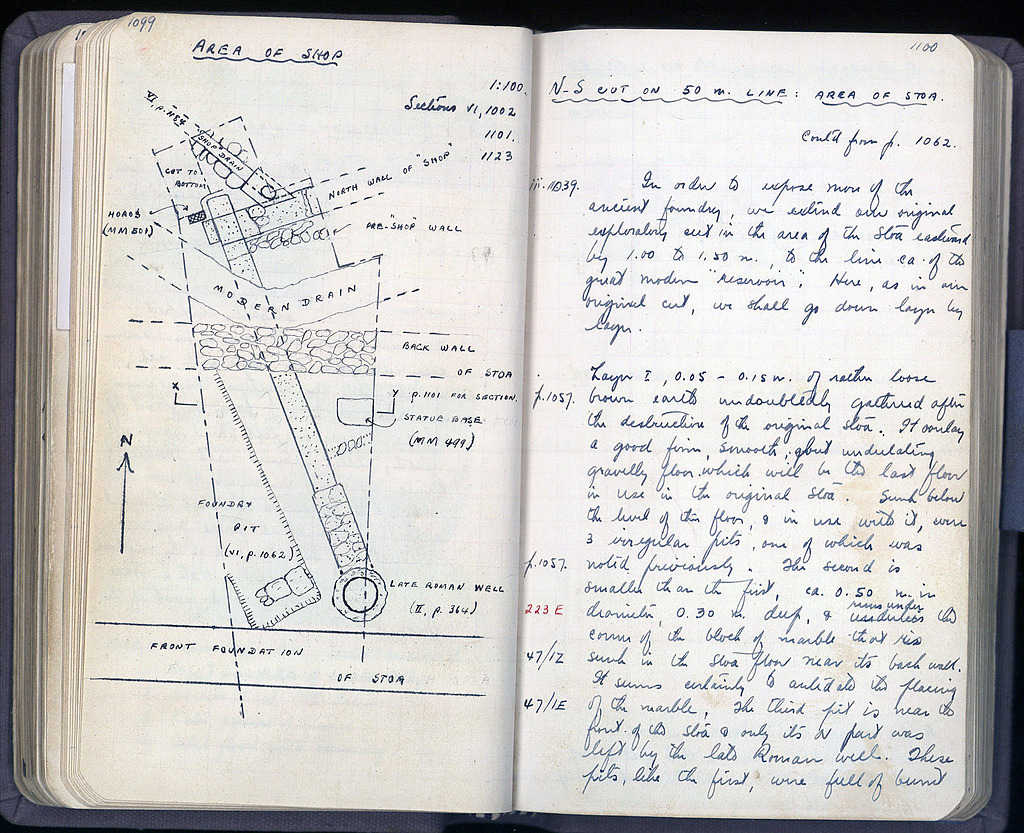 1099
AREA OF SHOP
1:100.
Sections VI, 1002
1101.
1123
VI, p. 1184
SHOP DRAIN
CUT TO
BOTTOM
NORTH WALL OF "SHOP"
HOROS
(MM 501)
PRE-"SHOP" WALL
MODERN DRAIN
BACK WALL
OF STOA
X
Y
p. 1101 FOR SECTION.
STATUE BASE
(MM 499)
N
FOUNDRY
PIT
(VI, p. 1062)
LATE ROMAN WELL
(II, p. 364)
FRONT FOUNDATION
OF STOA
1100
N-S CUT ON 50 m. LINE: AREA OF STOA.
Cont'd from p. 1062.
In order to expose more of the
ancient foundry, we extend our original
exploratory cut in the area of the Stoa eastward
by 1.00 to 1.50 m., to the line ca. of the
great modern "reservoir". Here, as in our
original cut, we shall go down layer by
layer.
Layer I, 0.05 - 0.15 m. of rather loose
p. 1057. brown earth undoubtedly gathered after
the destruction of the original Stoa. It overlay
a good firm, smooth, but undulating
gravelly floor which will be the last floor
in use in the original Stoa. Sunk below
the level of this floor, & in use with it, were
3 irregular pits, one of which was
p. 1057. noted previously. The second is
smaller than the first, ca. 0.50 m. in
223 E diameter, 0.30 m. deep, & runs under the
corner of the block of marble that is
47/IZ sunk in the Stoa floor near its back wall.
It seems certainly to antedate the placing
47/IE of the marble. The third pit is near the
front of the Stoa & only its N part was
left by the late Roman well. These
pits, like the first, were full of burnt